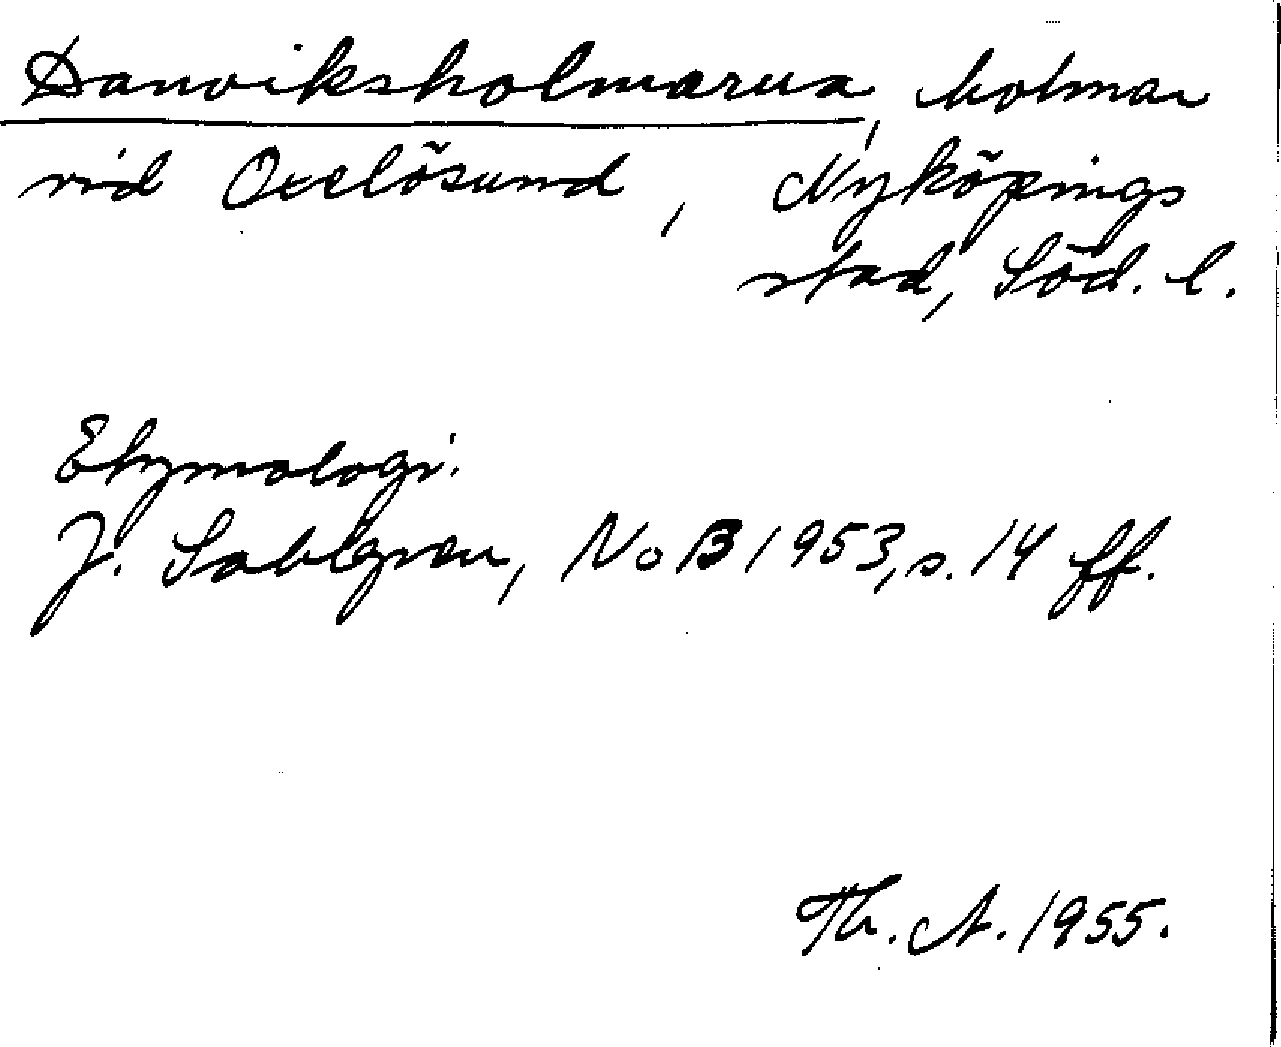 Danviksholmarna, holmar
vid Oxelösund, Nyköpings
stad, Söd. l.
Etymologi.
J. Sahlgren, NoB 1953, s. 14 ff.
Th. A. 1955.